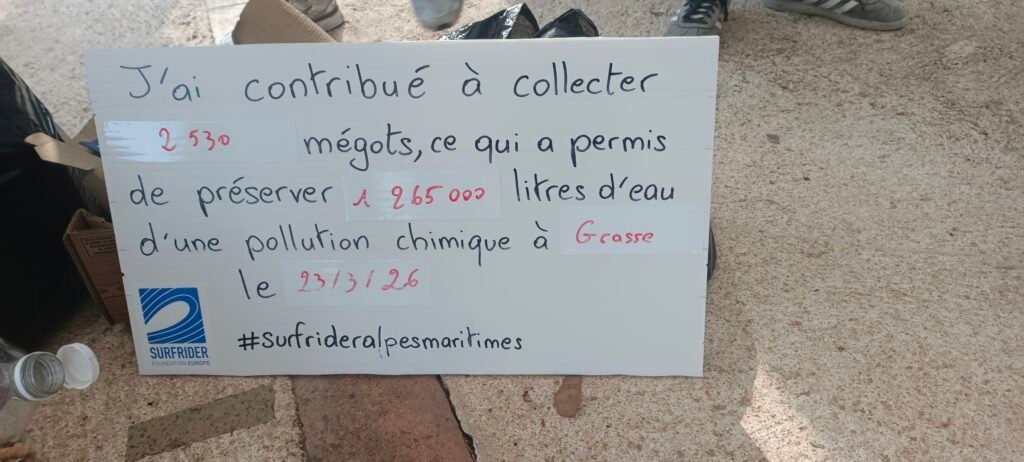 J'ai contribué à collecter
2 530 mégots, ce qui a permis
de préserver 1 265 000 litres d'eau
d'une pollution chimique à Grasse
le 23/3/26
#surfrideralpesmaritimes
SURFRIDER
FOUNDATION EUROPE